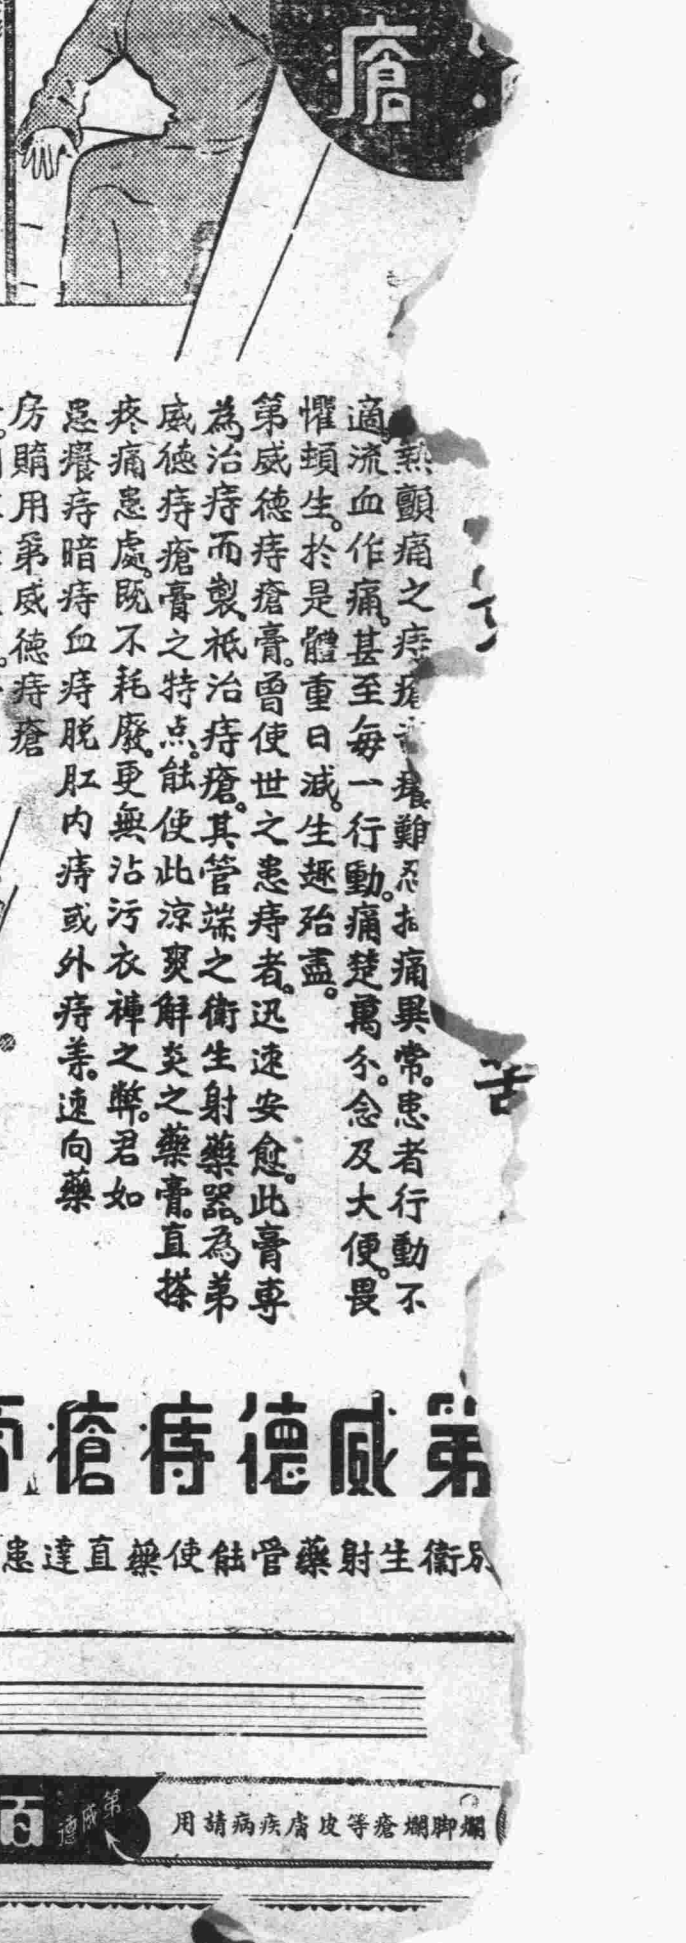 瘡
熱顫痛之痔瘡難忍痛異常。患者行動不
適。流血作痛。甚至每一行動。痛楚萬分。念及大便。畏
懼頓生。於是體重日減。生趣殆盡。
第威德痔瘡膏。曾使世之患痔者。迅速安愈。此膏專
為治痔而製。祗治痔瘡。其管端之衛生射藥器。為第
威德痔瘡膏之特点。能使此涼爽解炎之藥膏。直搽
疼痛患處。既不耗廢。更無沾污衣褲之弊。君如
患癢痔暗痔血痔脫肛内痔或外痔等。速向藥
房購用第威德痔瘡
苦
第威德痔瘡
別衛生射藥管能使藥直達患
第威德
爛脚爛瘡等皮膚疾病請用